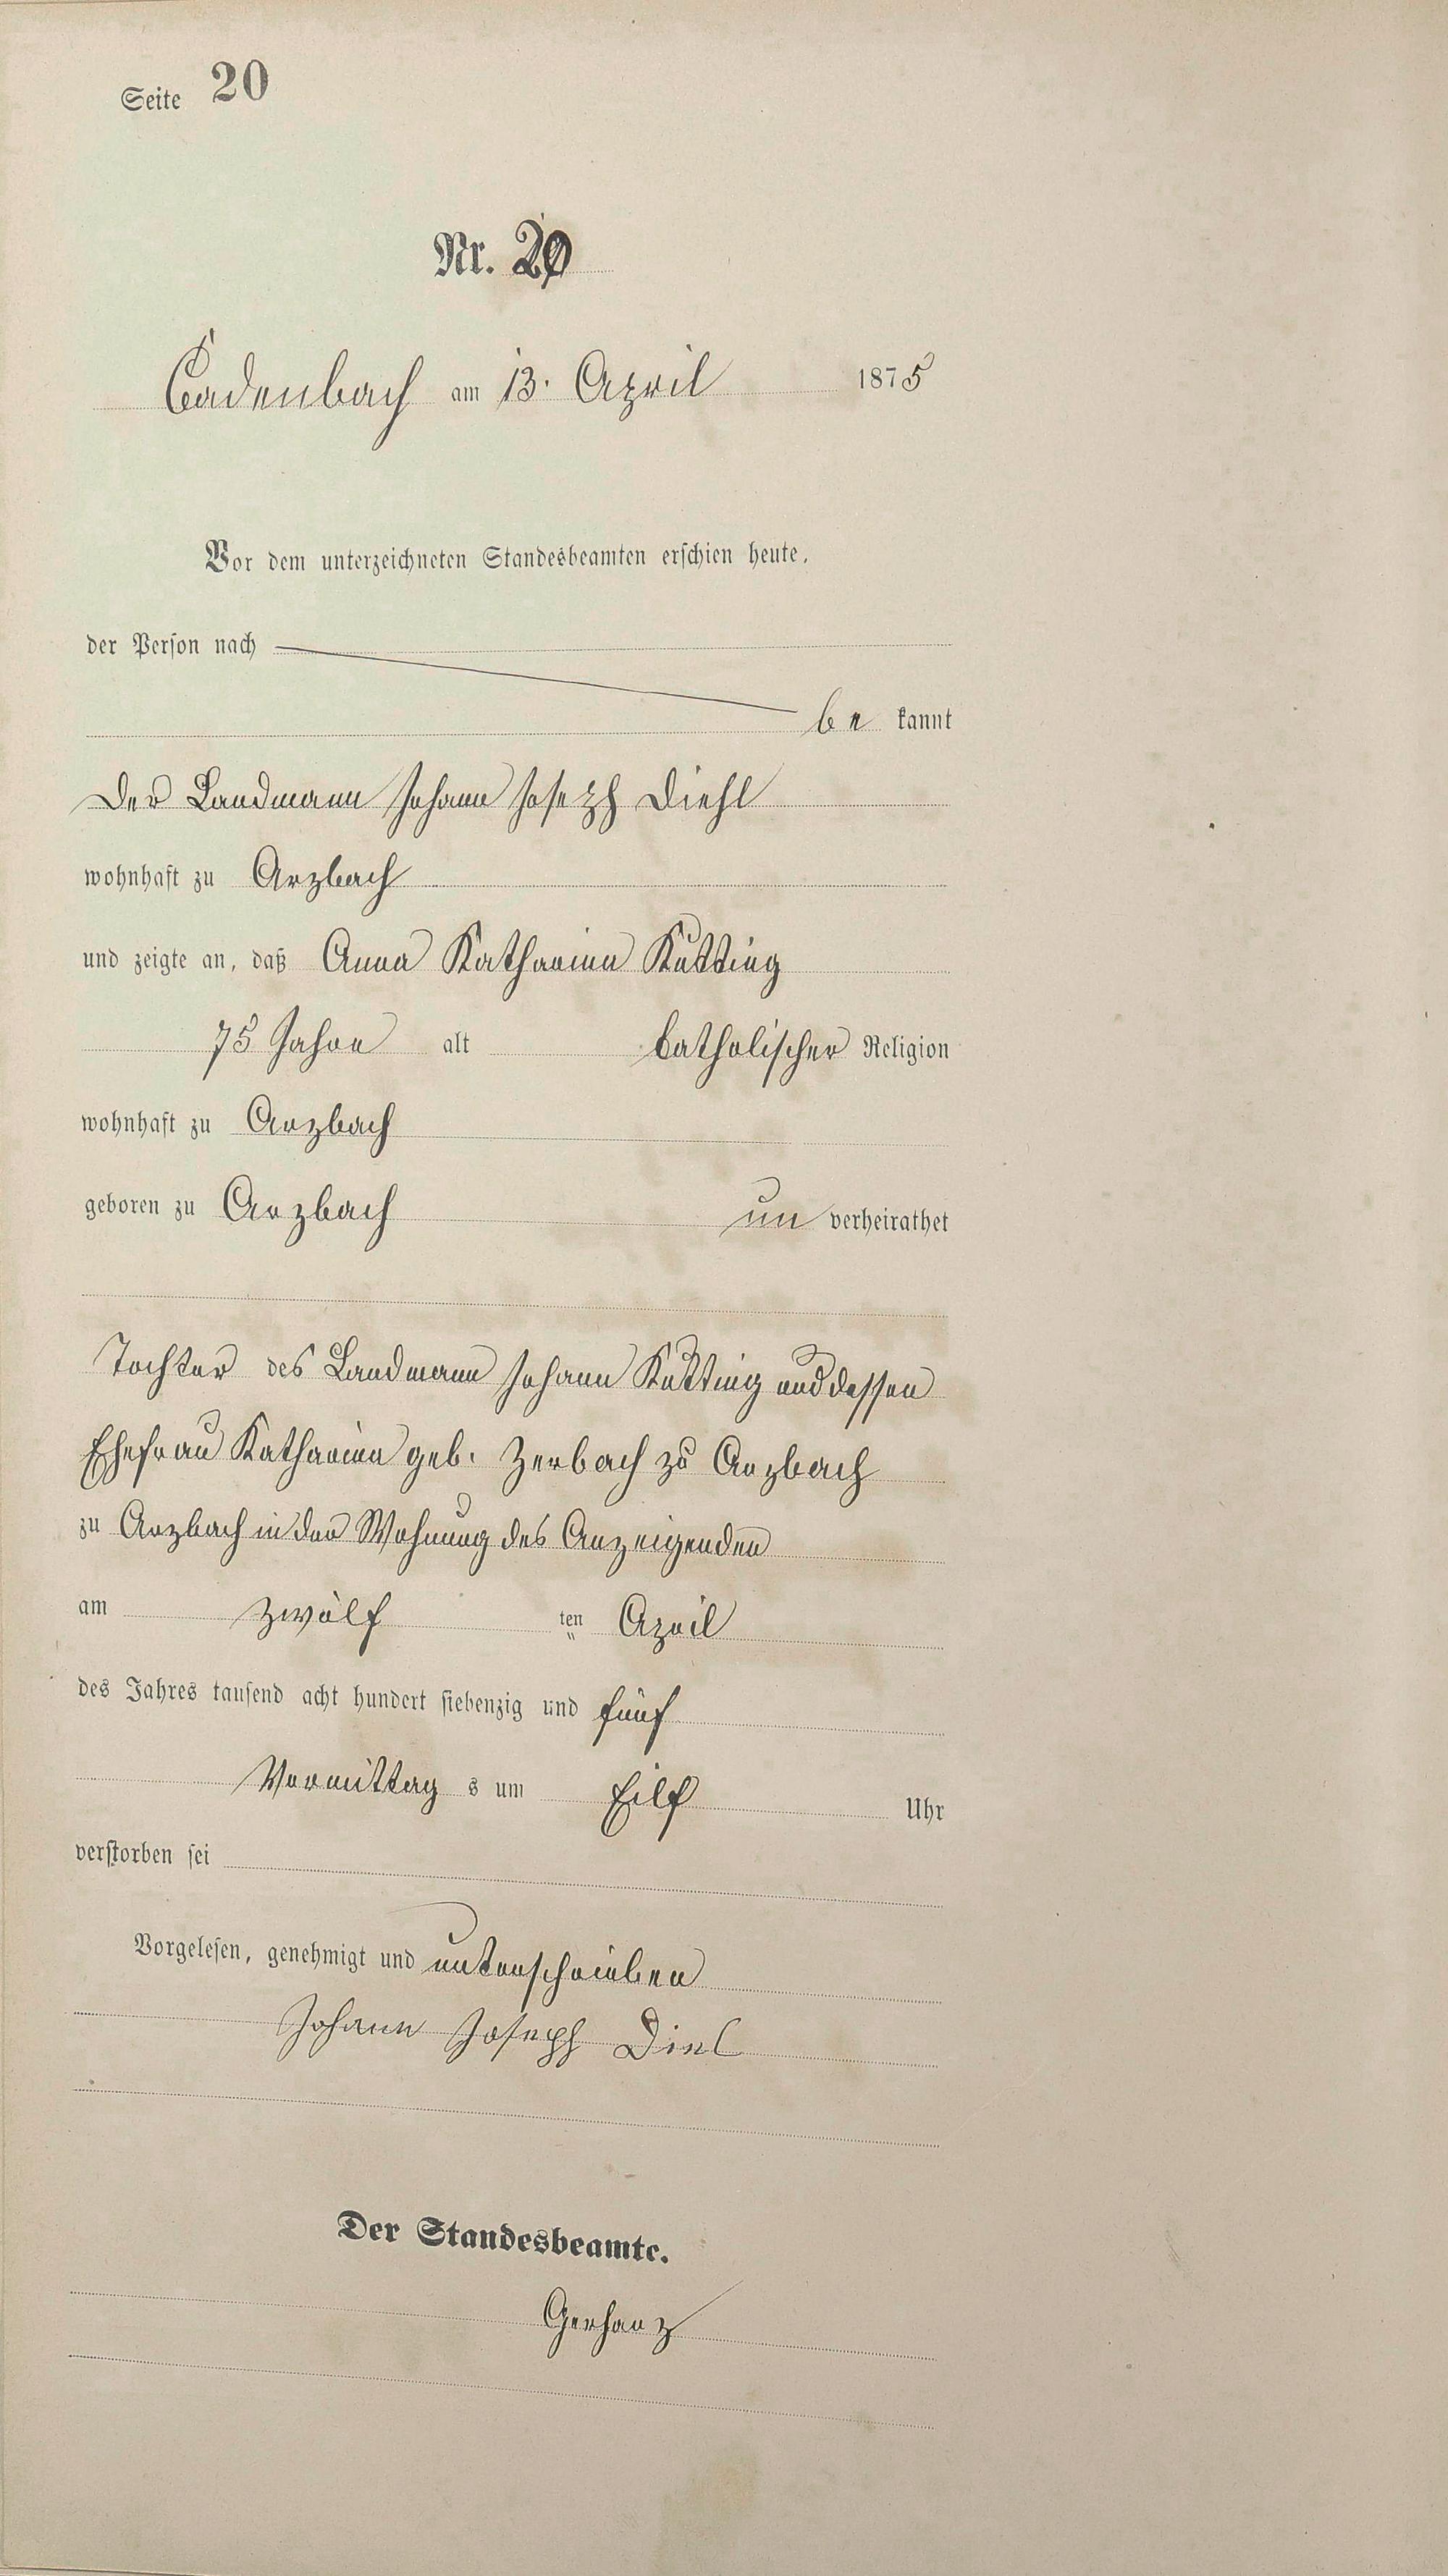 Seite 20
Nr. 20
Cadenbach am 13. April 1875
Vor dem unterzeichneten Standesbeamten erschien heute,
der Person nach
be kannt
der Landmann Johann Joseph Diehl
wohnhaft zu Arzbach
und zeigte an, daß Anna Katharina Kutting
75 Jahre alt katholischer Religion
wohnhaft zu Arzbach
geboren zu Arzbach un verheirathet
Tochter des Landmann Johann Kutting und dessen
Ehefrau Katharina geb. Zerbach zu Arzbach
zu Arzbach in der Wohnung des Anzeigenden
am zwölf ten April
des Jahres tausend acht hundert siebenzig und fünf
Vormittag s um Eilf Uhr
verstorben sei
Vorgelesen, genehmigt und unterschrieben
Johann Joseph Diel
Der Standesbeamte.
Gerharz